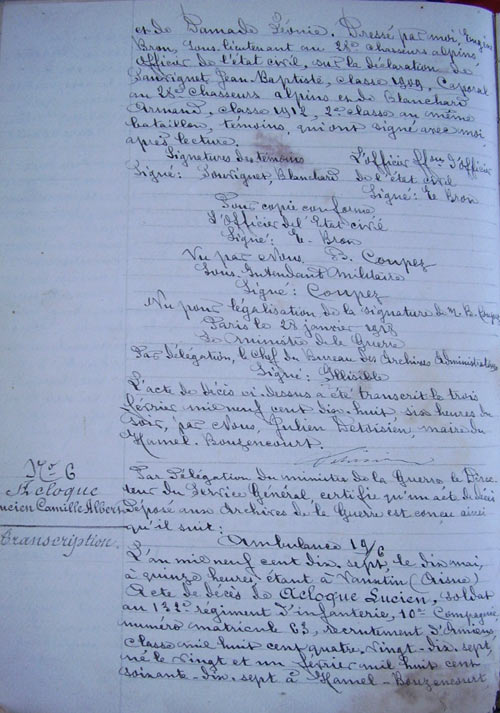 et de Damade Léonie. Dressé par moi, Eugène
Bron, sous-lieutenant au 28e chasseurs alpins
officier de l'état civil, sur la déclaration de
Souvignet Jean Baptiste, classe 1909, Caporal
au 28e chasseurs alpins et de Blanchard
Armand, classe 1912, 2e classe au même
bataillon, témoins, qui ont signé avec moi
après lecture.
Signatures des témoins L'officier ffon d'officier
Signé: Souvignet, Blanchard de l'état civil
Signé: E. Bron
Pour copie conforme
L'Officier de l'Etat civil
Signé: E. Bron
Vu par Nous, B. Coupez
Sous-Intendant Militaire
Signé: Coupez
Vu pour légalisation de la signature de M. B. Coupez
Paris le 28 janvier 1918
Le Ministre de la Guerre
Par Délégation, le Chef du Bureau des Archives Administratives
Signé: Illisible
L'acte de décès ci-dessus a été transcrit le trois
février mil neuf cent dix huit, six heures du
soir, par Nous, Julien maire du
Hamel-Bouzencourt.
No 6
Acloque
Lucien Camille Albert
transcription.
Par Délégation du ministre de la Guerre, le Direc-
teur du Service Général, certifie qu'un acte de décès
déposé aux Archives de la Guerre est conçu ainsi
qu'il suit:
Ambulance 19/6
L'an mil neuf cent dix sept, le dix mai,
à quinze heures étant à (Aisne)
Acte de décès de Acloque Lucien, soldat
au 132e régiment d'infanterie, 10e Compagnie
numéro matricule 63, recrutement d'Amiens
classe mil huit cent quatre vingt-dix-sept
né le vingt et un février mil huit cent
soixante-dix-sept à Hamel-Bouzencourt